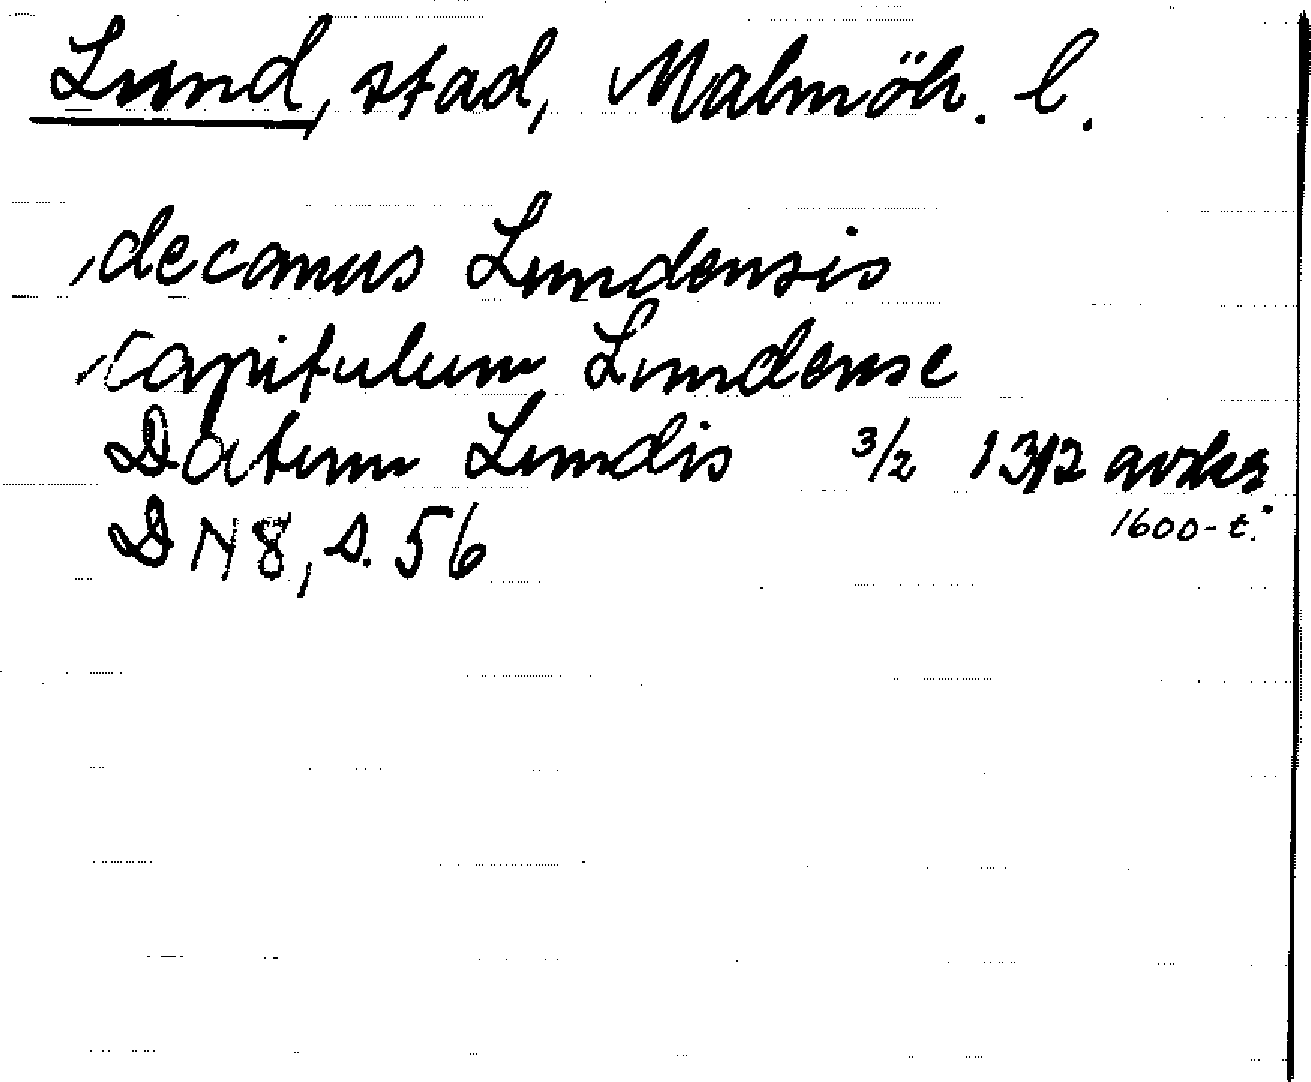 Lund, stad, Malmöh. l.
, decanus Lundensis
, capitulum Lundense
Datum Lundis 3/2 1312 avskr.
1600-t.
DN8, s. 56